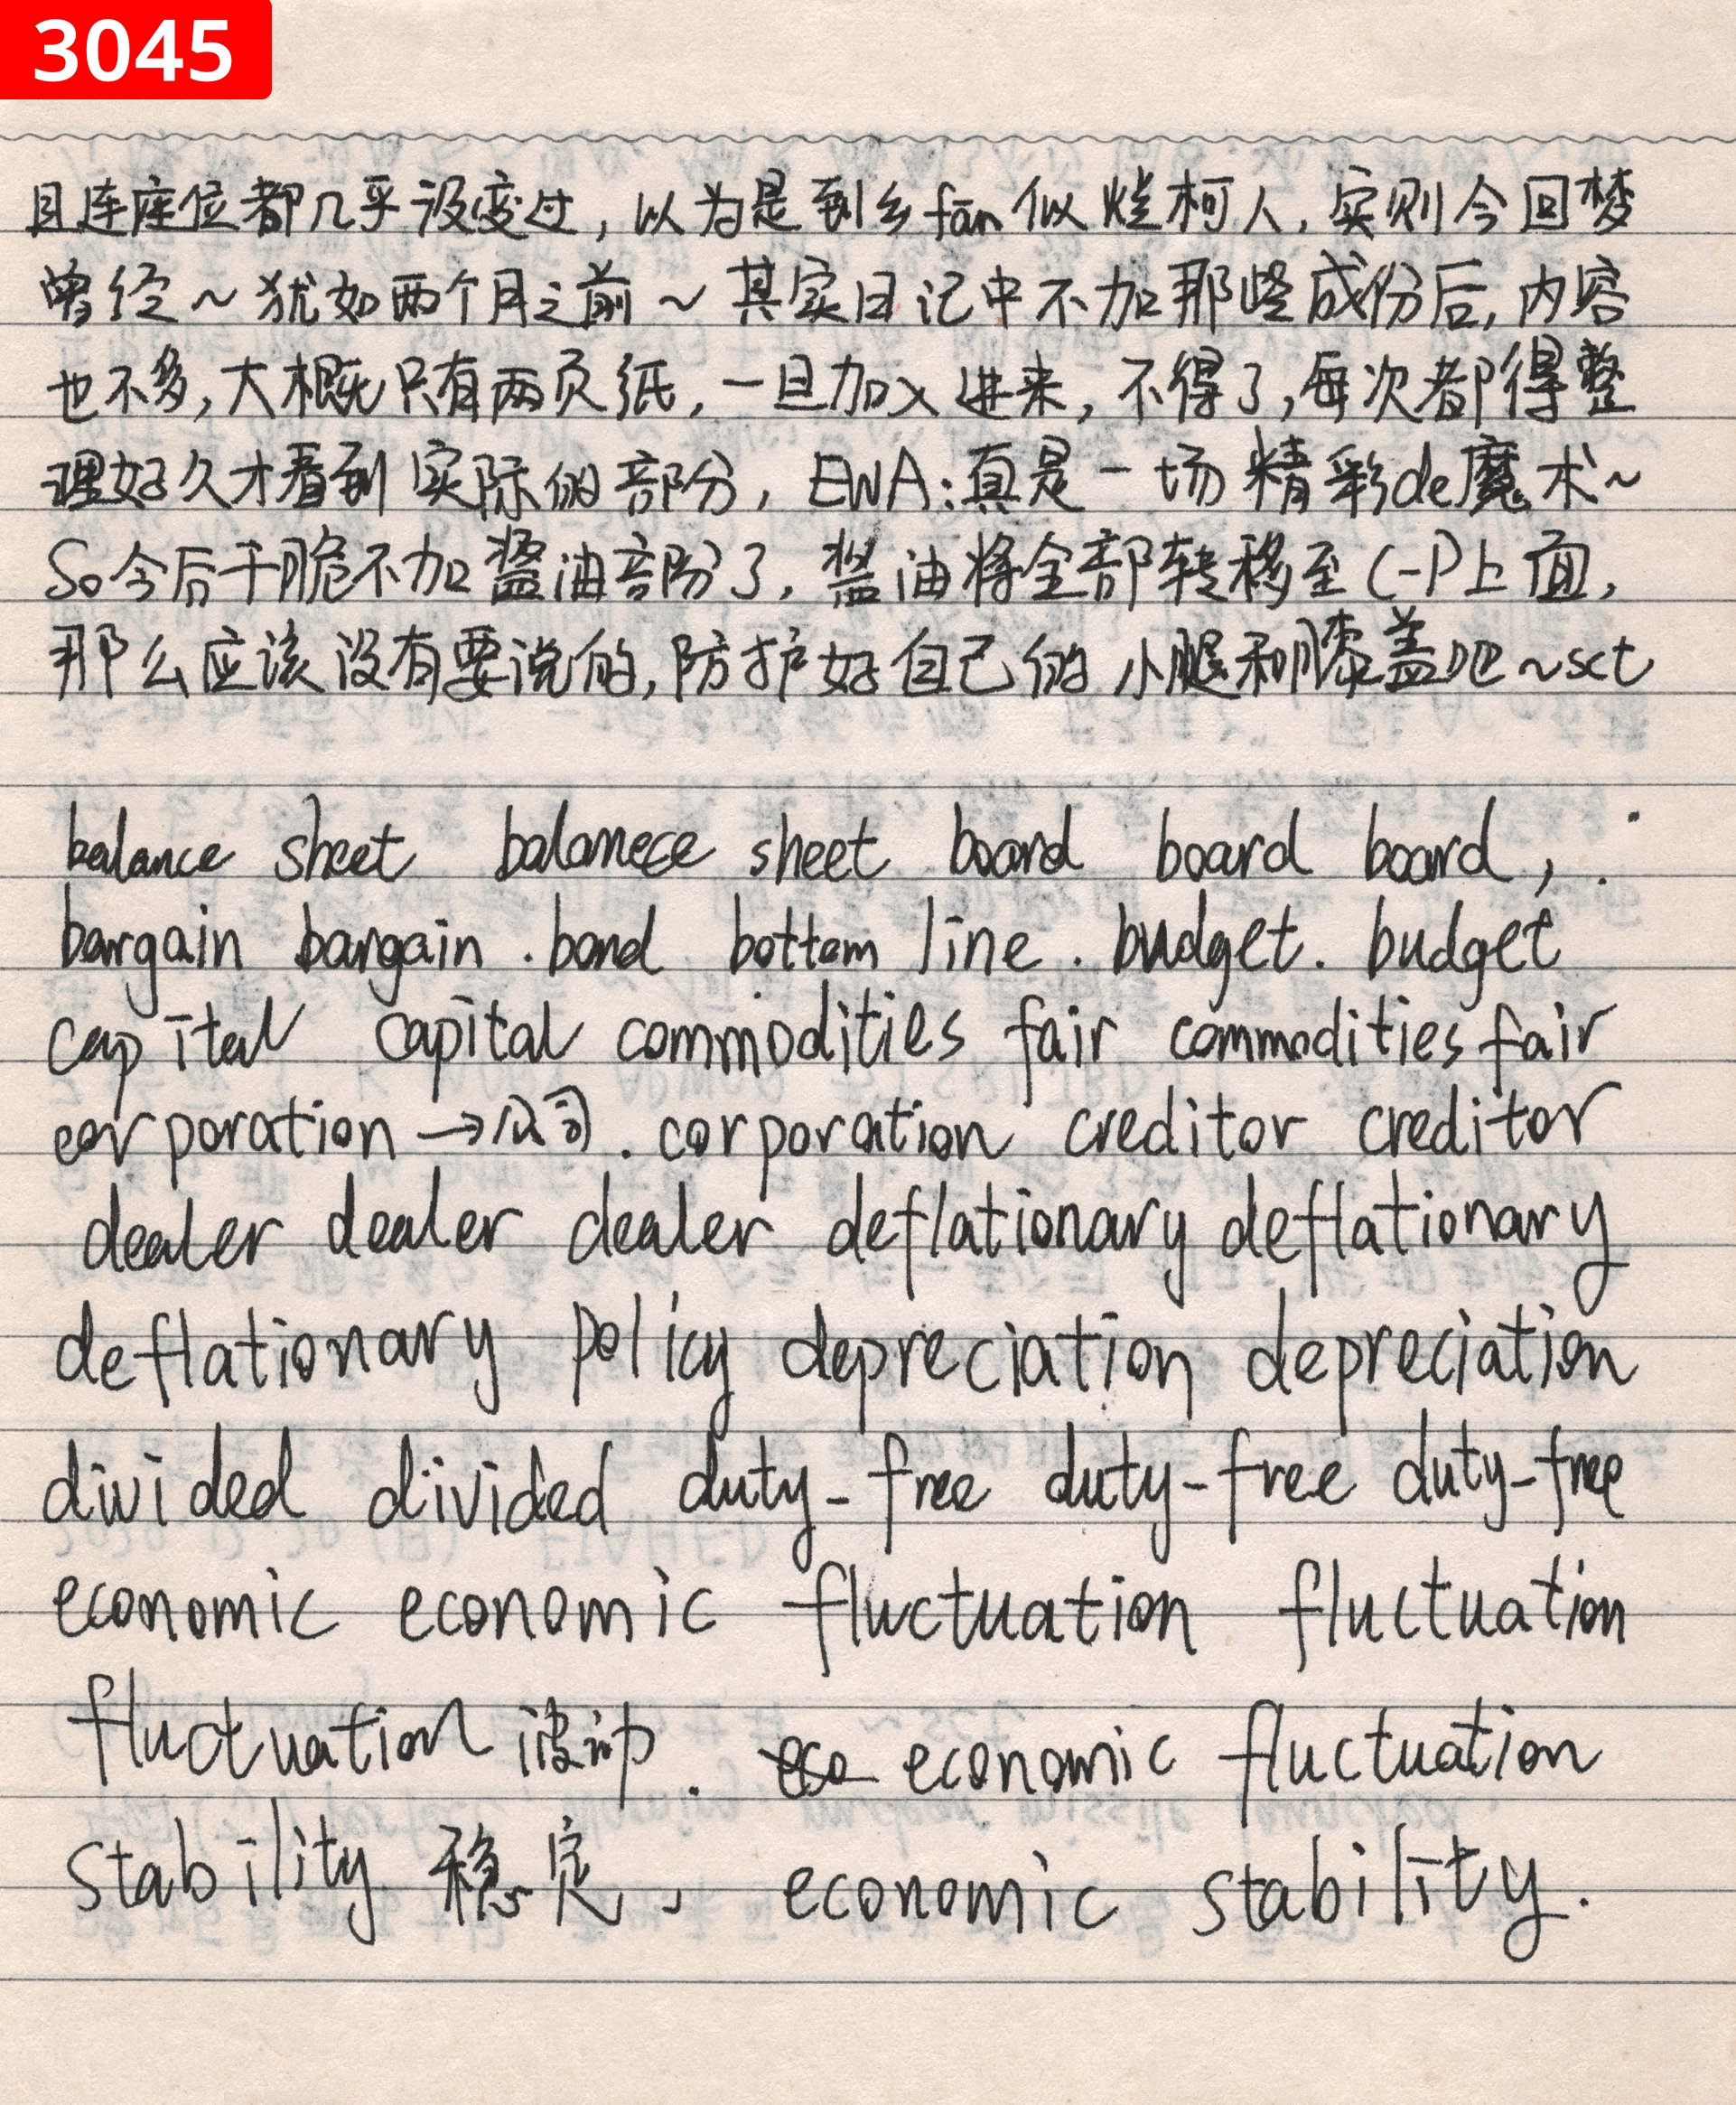 3045
且连座位都几乎没变过，以为是到乡fān似烂柯人，实则今回梦
曾经～犹如两个月之前～其实日记中不加那些成份后，内容
也不多，大概只有两页纸，一旦加入进来，不得了，每次都得整
理好久才看到实际的部分，EWA：真是一场精彩de魔术～
So今后干脆不加酱油部份了，酱油将全部转移至C-P上面，
那么应该没有要说的，防护好自己的小腿和膝盖吧～sct
balance sheet balanece sheet board board board，.
bargain bargain . bond bottom line . budget. budget
capital capital commodities fair commodities fair
corporation→公司. corporation creditor creditor
dealer dealer dealer deflationary deflationary
deflationary policy depreciation depreciation
divided divided duty-free duty-free duty-free
economic economic fluctuation fluctuation
fluctuation 波动. eco economic fluctuation
stability 稳定、 economic stability.